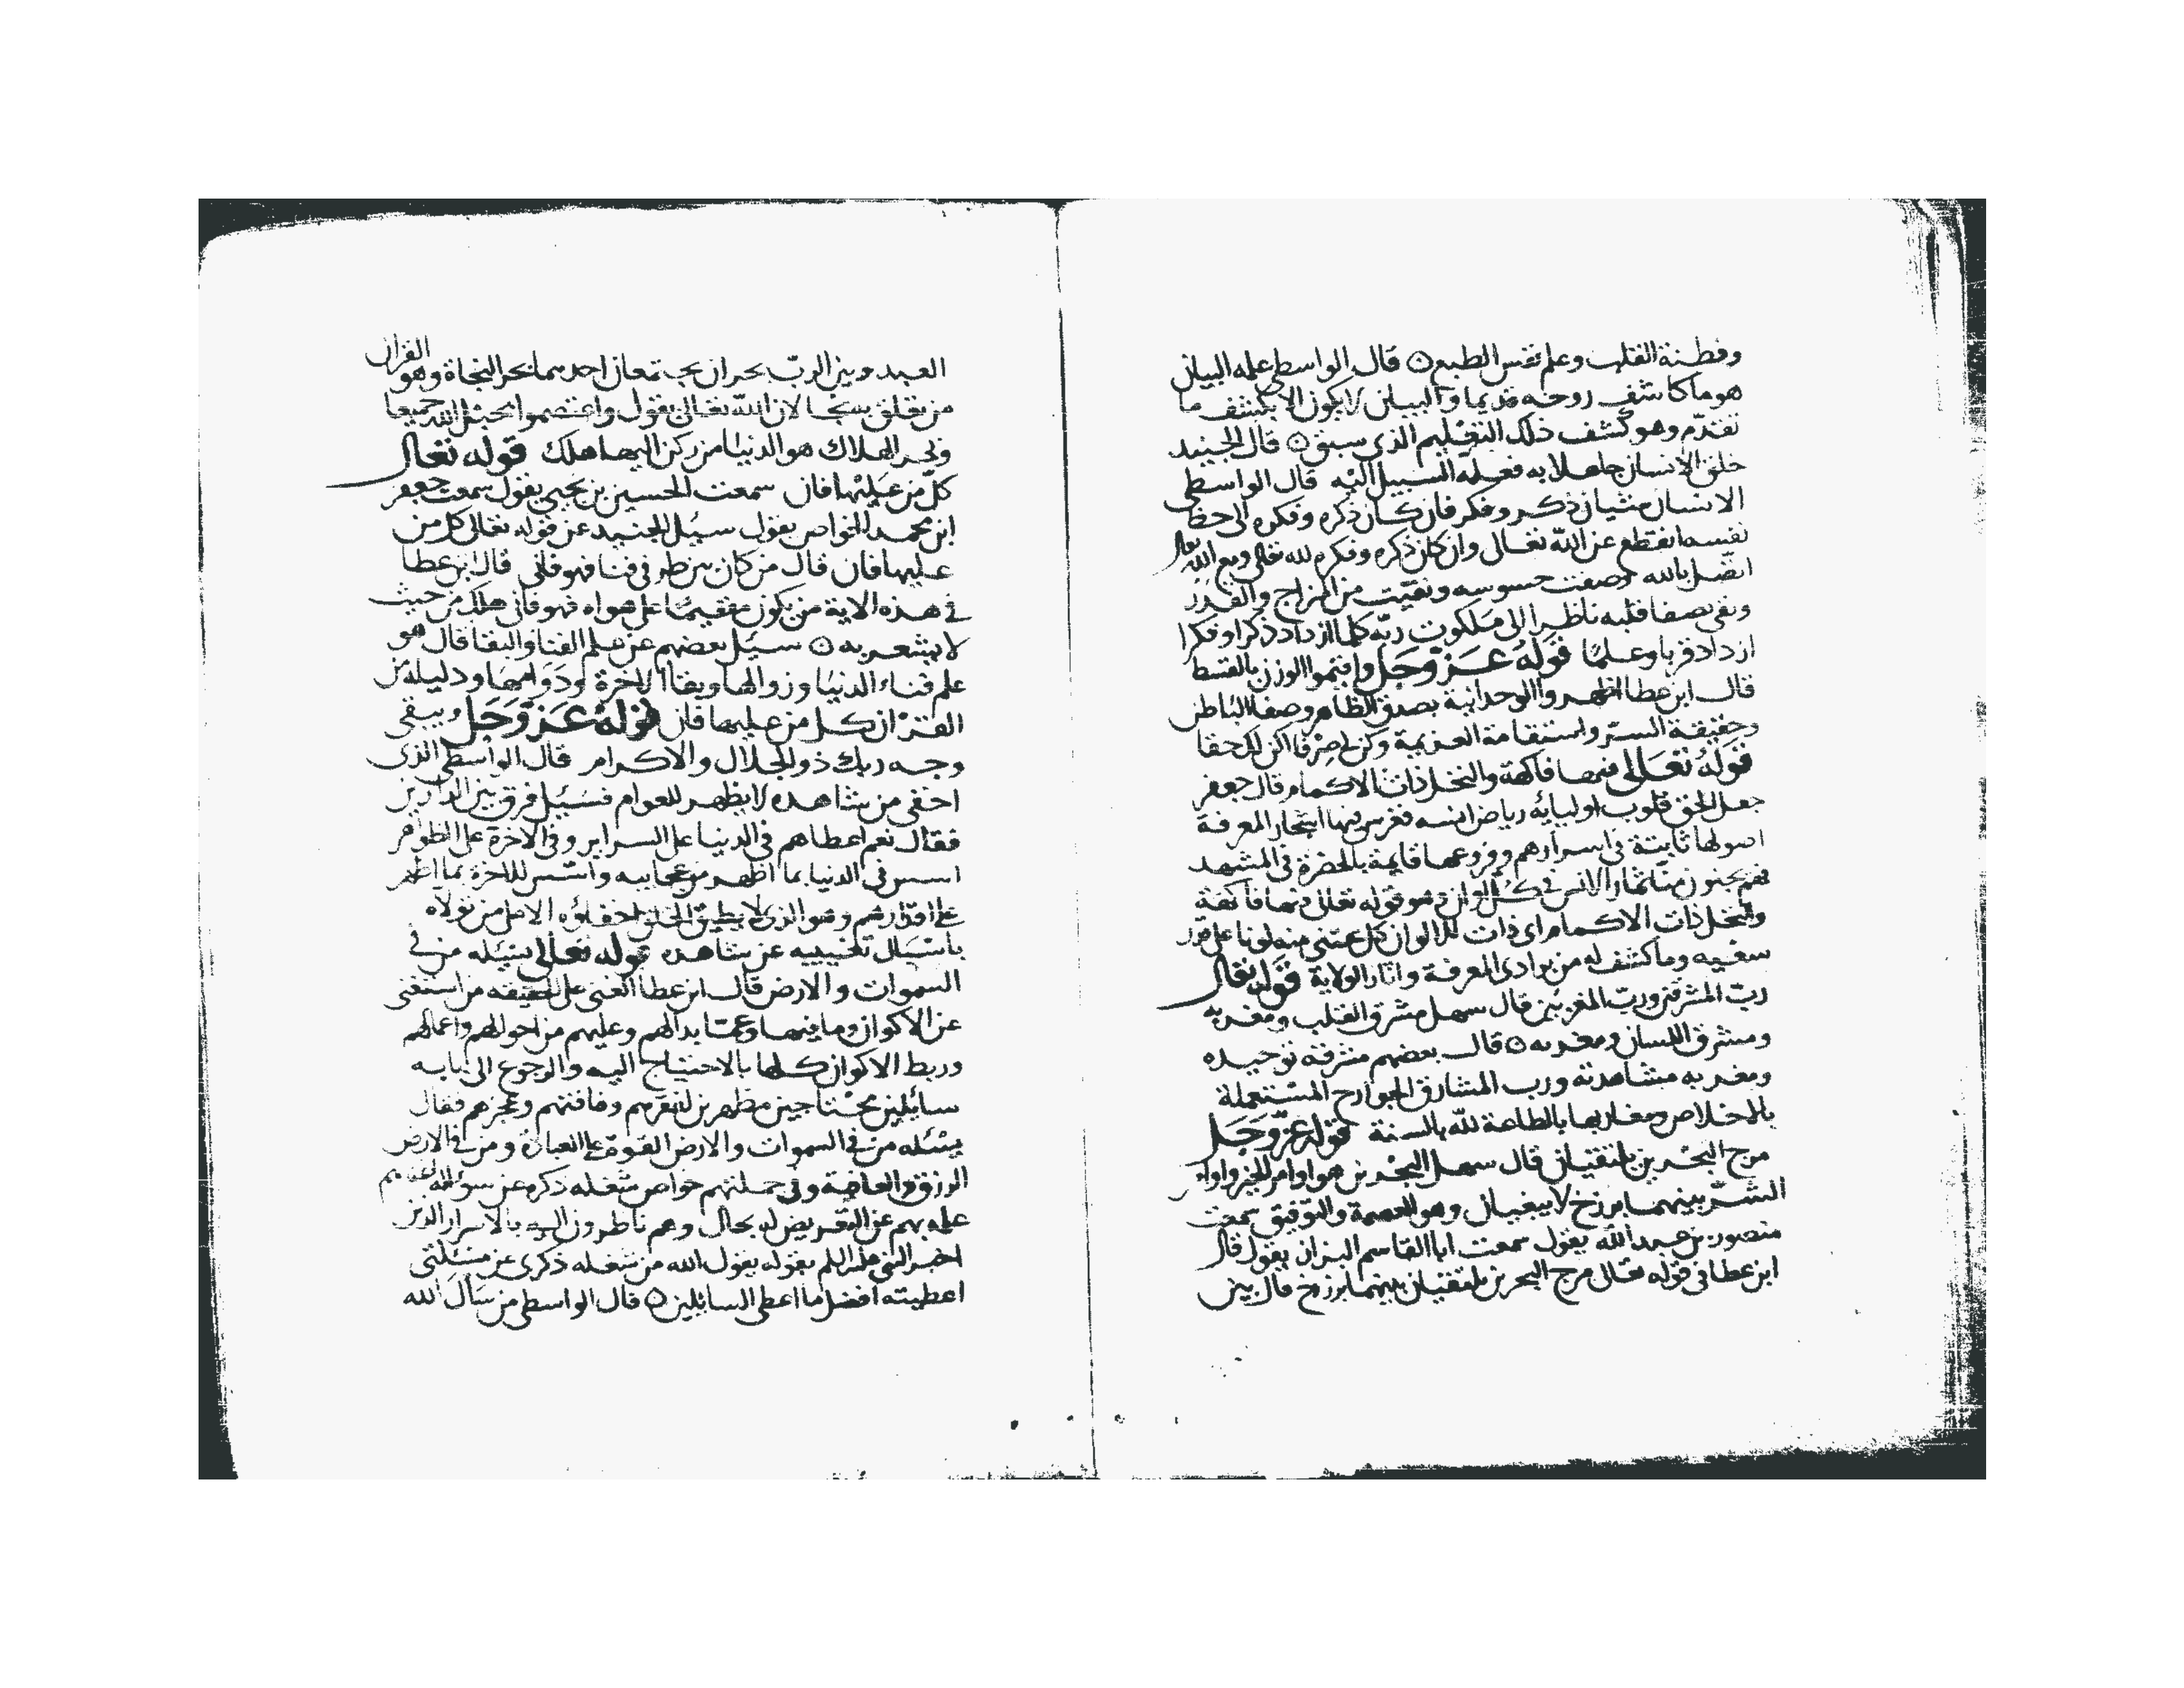 وفطنة القلب وعلم نفس الطبع ۞ قال الواسطى علمه البيان
هو ما كاشف روحه قديما والبيان لا يكون الا بكشف ما
تقدّم وهو كشف ذلك التعليم الذى سبق ۞ قال الجنيد
خلق الانسان جاهلا به فعلمه السبيل اليه قال الواسطى
الانسان شيان ذكر وفكر فان كان ذكره وفكره الى حظ
نفسه انقطع عن الله تعالى وان كان ذكره وفكره لله تعالى ومع الله تعالى
اتصل بالله وصفت حسوسه ونقيت من المزاج والقدر
وبقى بصفا قلبه ناظرا الى ملكوت ربّه كلما ازداد ذكرا وفكرا
ازداد قربا وعلمًا قوله عز وجل واقيموا الوزن بالقسط
قال ابن عطا اظهروا الوحدانية بصدق الظاهر وصفا الباطن
وحقيقة السر واستقامة العزيمة وكن لى صرفا اكن لك حقا
قوله تعالى فيها فاكهة والنخل ذات الاكمام قال جعفر
جعل الحق قلوب اوليايه رياض انسه فغرس فيها اشجار المعرفة
اصولها ثابتة فى اسرارهم وفروعها قايمة بالحضرة فى المشهد
فهم يجنون منها ثمار الانس فى كل اوان وهو قوله تعالى فيها فاكهة
والنخل ذات الاكمام اى ذات الالوان كل يجتنى منه لونا على قدر
سعيه وما كشف له من بوادى المعرفة واثار الولاية قوله تعالى
ربّ المشرقين وربّ المغربين قال سهل مشرق القلب ومغربه
ومشرق اللسان ومغربه ۞ قال بعضهم مشرقه توحيده
ومغربه مشاهدته ورب المشارق الجوارح المستعملة
بالاخلاص ومغاربها بالطاعة لله بالسنة قوله عزّ وجل
مرج البحرين يلتقيان قال سهل البحرين هو اوامر الخير واوامر
الشرّ بينهما برزخ لا يبغيان وهو العصمة والتوفيق سمعت
منصور بن عبد الله يقول سمعت ابا القاسم البزاز يقول قال
ابن عطا فى قوله تعالى مرج البحرين يلتقيان بينهما برزخ قال بين
العبد وبين الربّ بحران يجتمعان احدهما بحر النجاة وهو القران
من تعلق به نجا لان الله تعالى يقول واعتصموا بحبل الله جميعا
وبحر الهلاك هو الدنيا من ركن اليها هلك قوله تعالى
كلّ من عليها فان سمعت الحسين بن يحيى يقول سمعت جعفر
ابن محمد الخواص يقول سيل الجنيد عن قوله تعالى كل من
عليها فان قال من كان بين طرفى فنا فهو فانى قال ابن عطا
فى هذه الاية من يكون مقيمًا على هواه فهو فانى هلك من حيث
لا يشعر به ۞ سيل بعضهم عن علم الفنا والبقا قال هو
علم فناء الدنيا وزوالها وبقا الاخرة ودوامها ودليله من
القران كل من عليها فان قوله عز وجل ويبقى
وجه ربك ذو الجلال والاكرام قال الواسطى الذى
اخفى من شاهده لا يظهر للعوام فسيل فرق بين الدارين
فقال نعم اعطاهم فى الدنيا على السراير وفى الاخرة على الظواهر
اسس فى الدنيا بما اظهر من عجايبه واسس للاخرة بما اظهر
على اقدارهم وهو الذى لا يطيق الخلق اخفاؤه الا من تولاه
باسبال تغييبه عن شاهده قوله تعالى يسئله من فى
السموات والارض قال ابن عطا الغنى على الحقيقه من استغنى
عن الاكوان وما فيها وعمّا بدا لهم وعليهم من احوالهم واعمالهم
وربط الاكوان كلها بالاحتياج اليه والرجوع الى بابه
سائلين محتاجين مظهرين لفقرهم وفاقتهم وعجزهم فقال
يسئله من فى السموات والارض القوة على العبادة ومن فى الارض
الرزق والعافية وفى جملتهم خواص شغله ذكره عن سواله
علمه بهم عن التعريض له بحال وهم ناظرون اليه بالاسرار الذين
اخبر النبى عليه السلم بقوله يقول الله من شغله ذكرى عن مسئلتى
اعطيته افضل ما اعطى السايلين ۞ قال الواسطى من سال الله